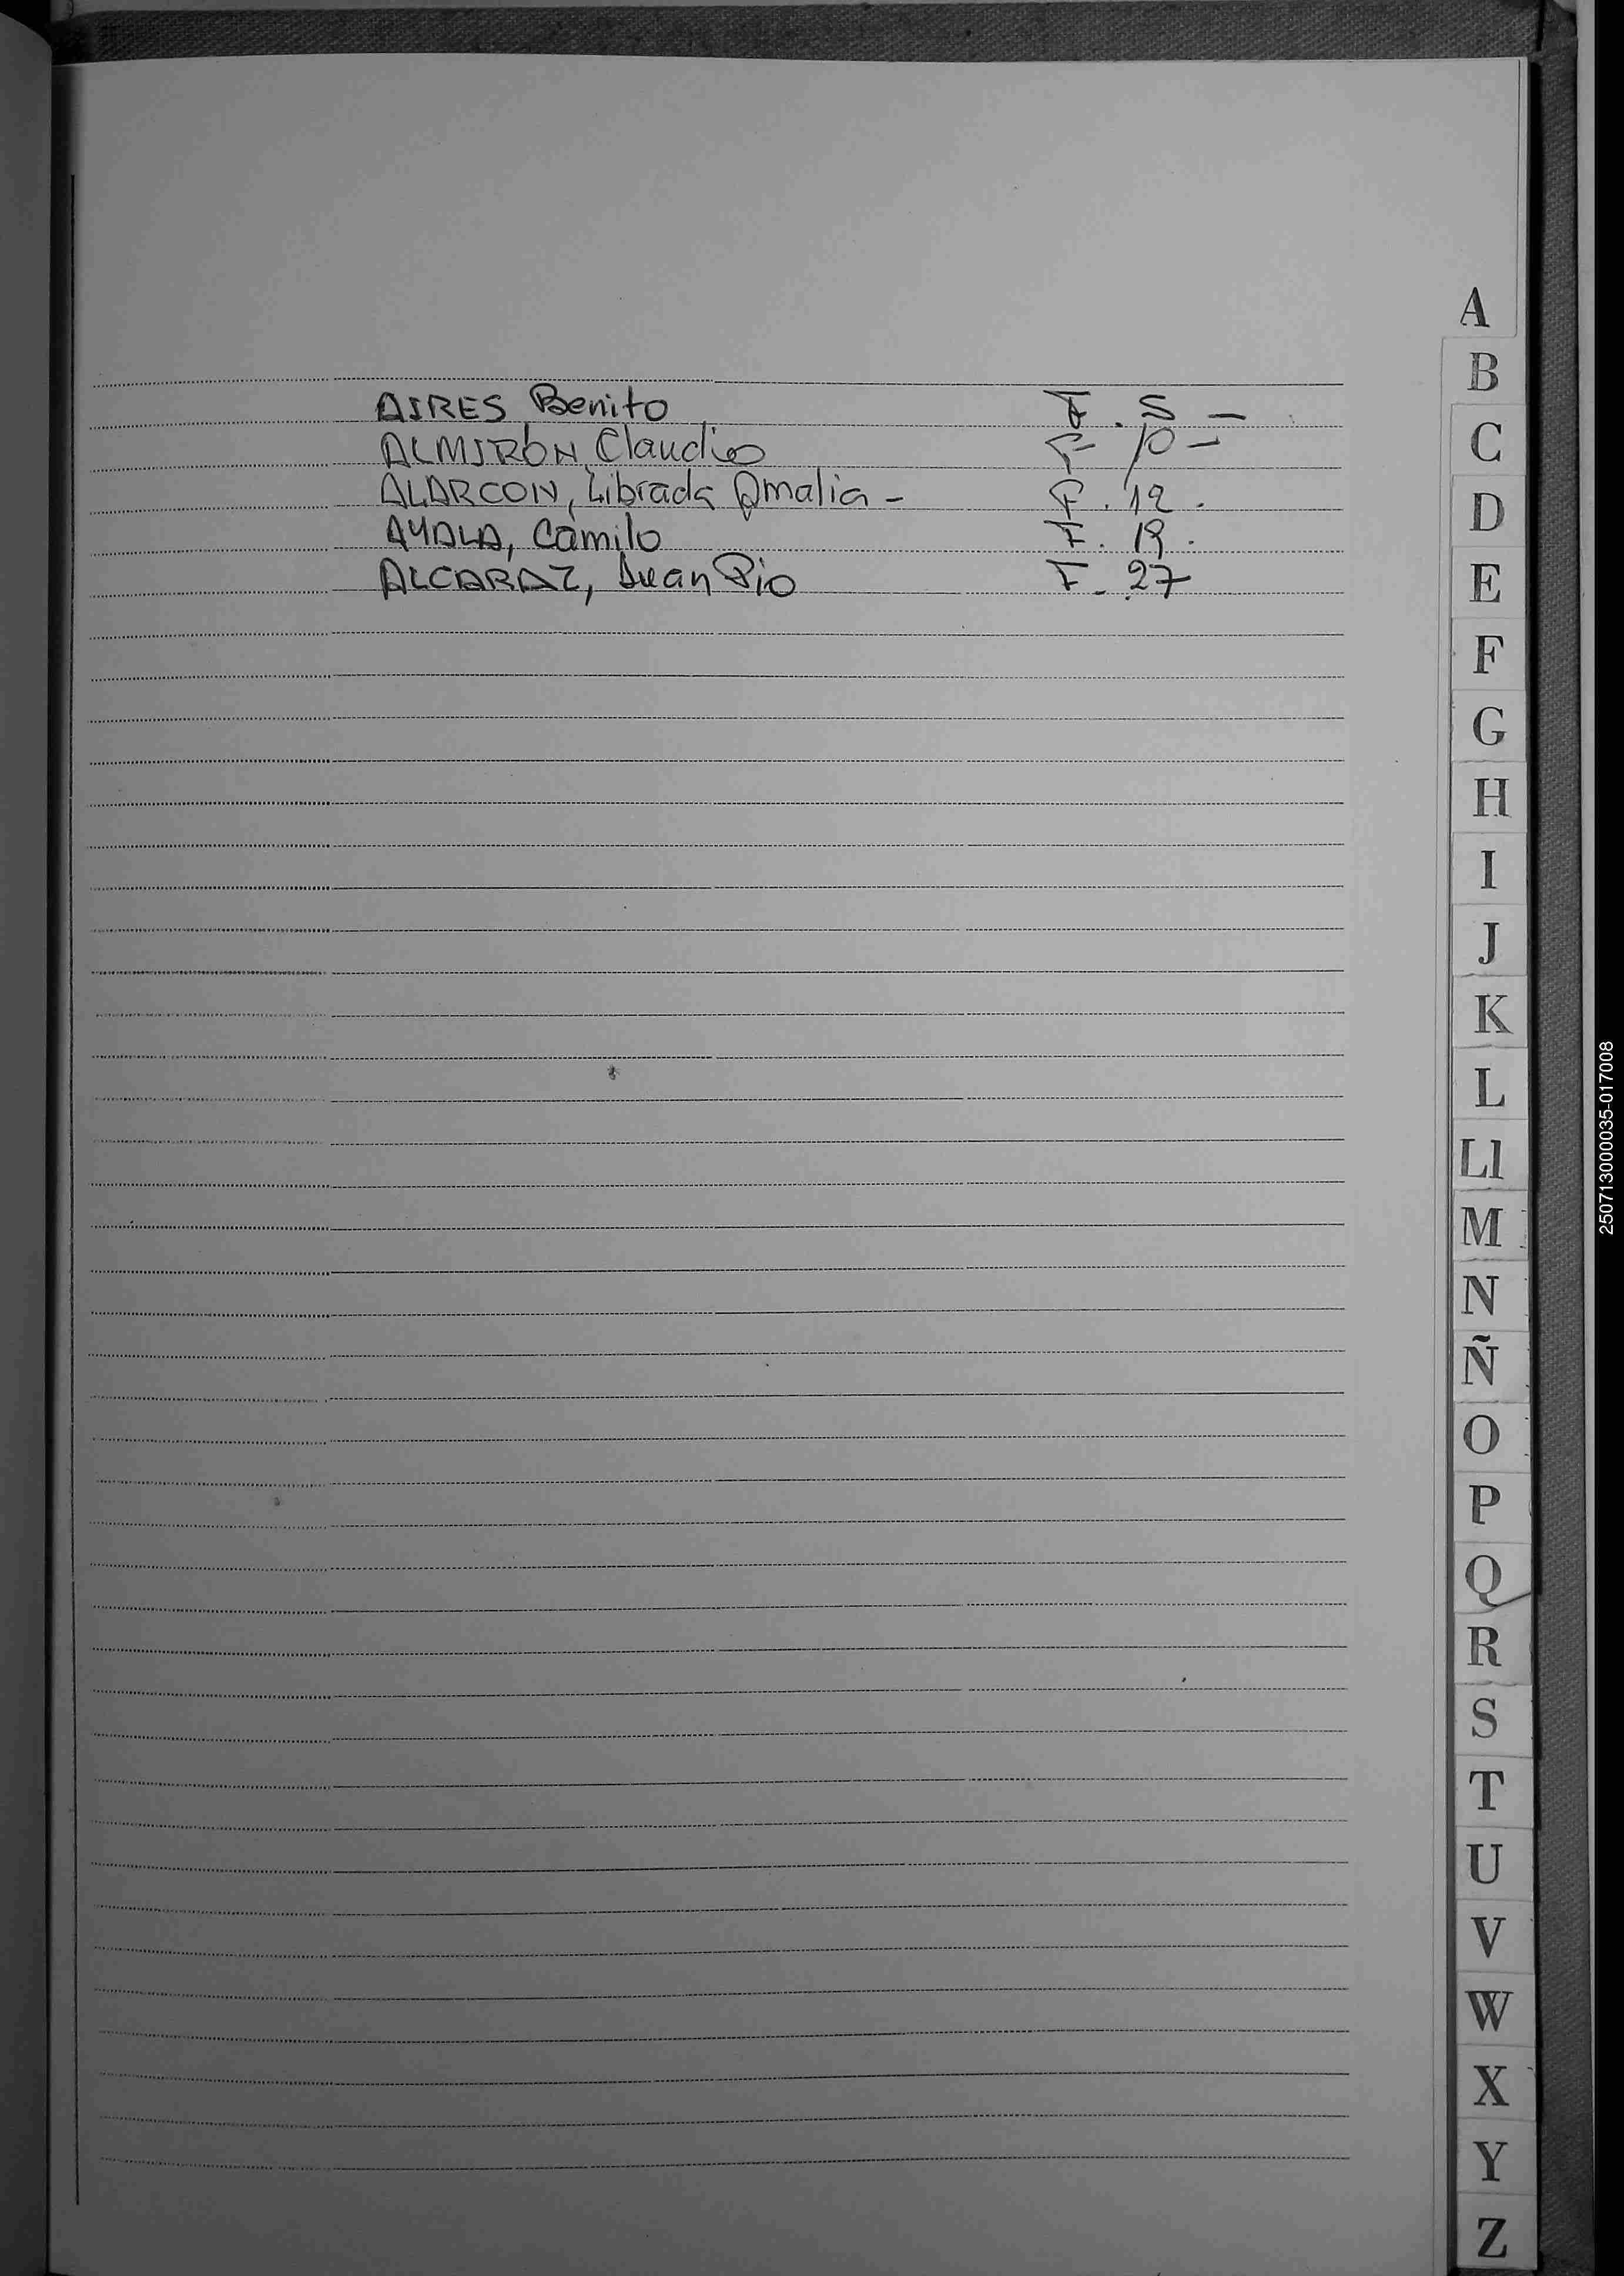 AIRES Benito F. 5 -
ALMIRÓN, Claudio F 10 -
ALARCON, Librada Amalia - F. 12.
AYALA, Camilo F. 19.
ALCARAZ, Juan Pio F. 27
A
B
C
D
E
F
G
H
I
J
K
L
Ll
M
N
Ñ
O
P
Q
R
S
T
U
V
W
X
Y
Z
250713000035-017008